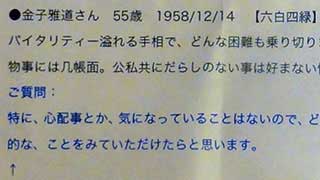 ●金子雅道さん 55歳 1958/12/14 【六白四緑】
バイタリティー溢れる手相で、どんな困難も乗り切り
物事には几帳面。公私共にだらしのない事は好まない
ご質問：
特に、心配事とか、気になっていることはないので、ど
的な、ことをみていただけたらと思います。
↑